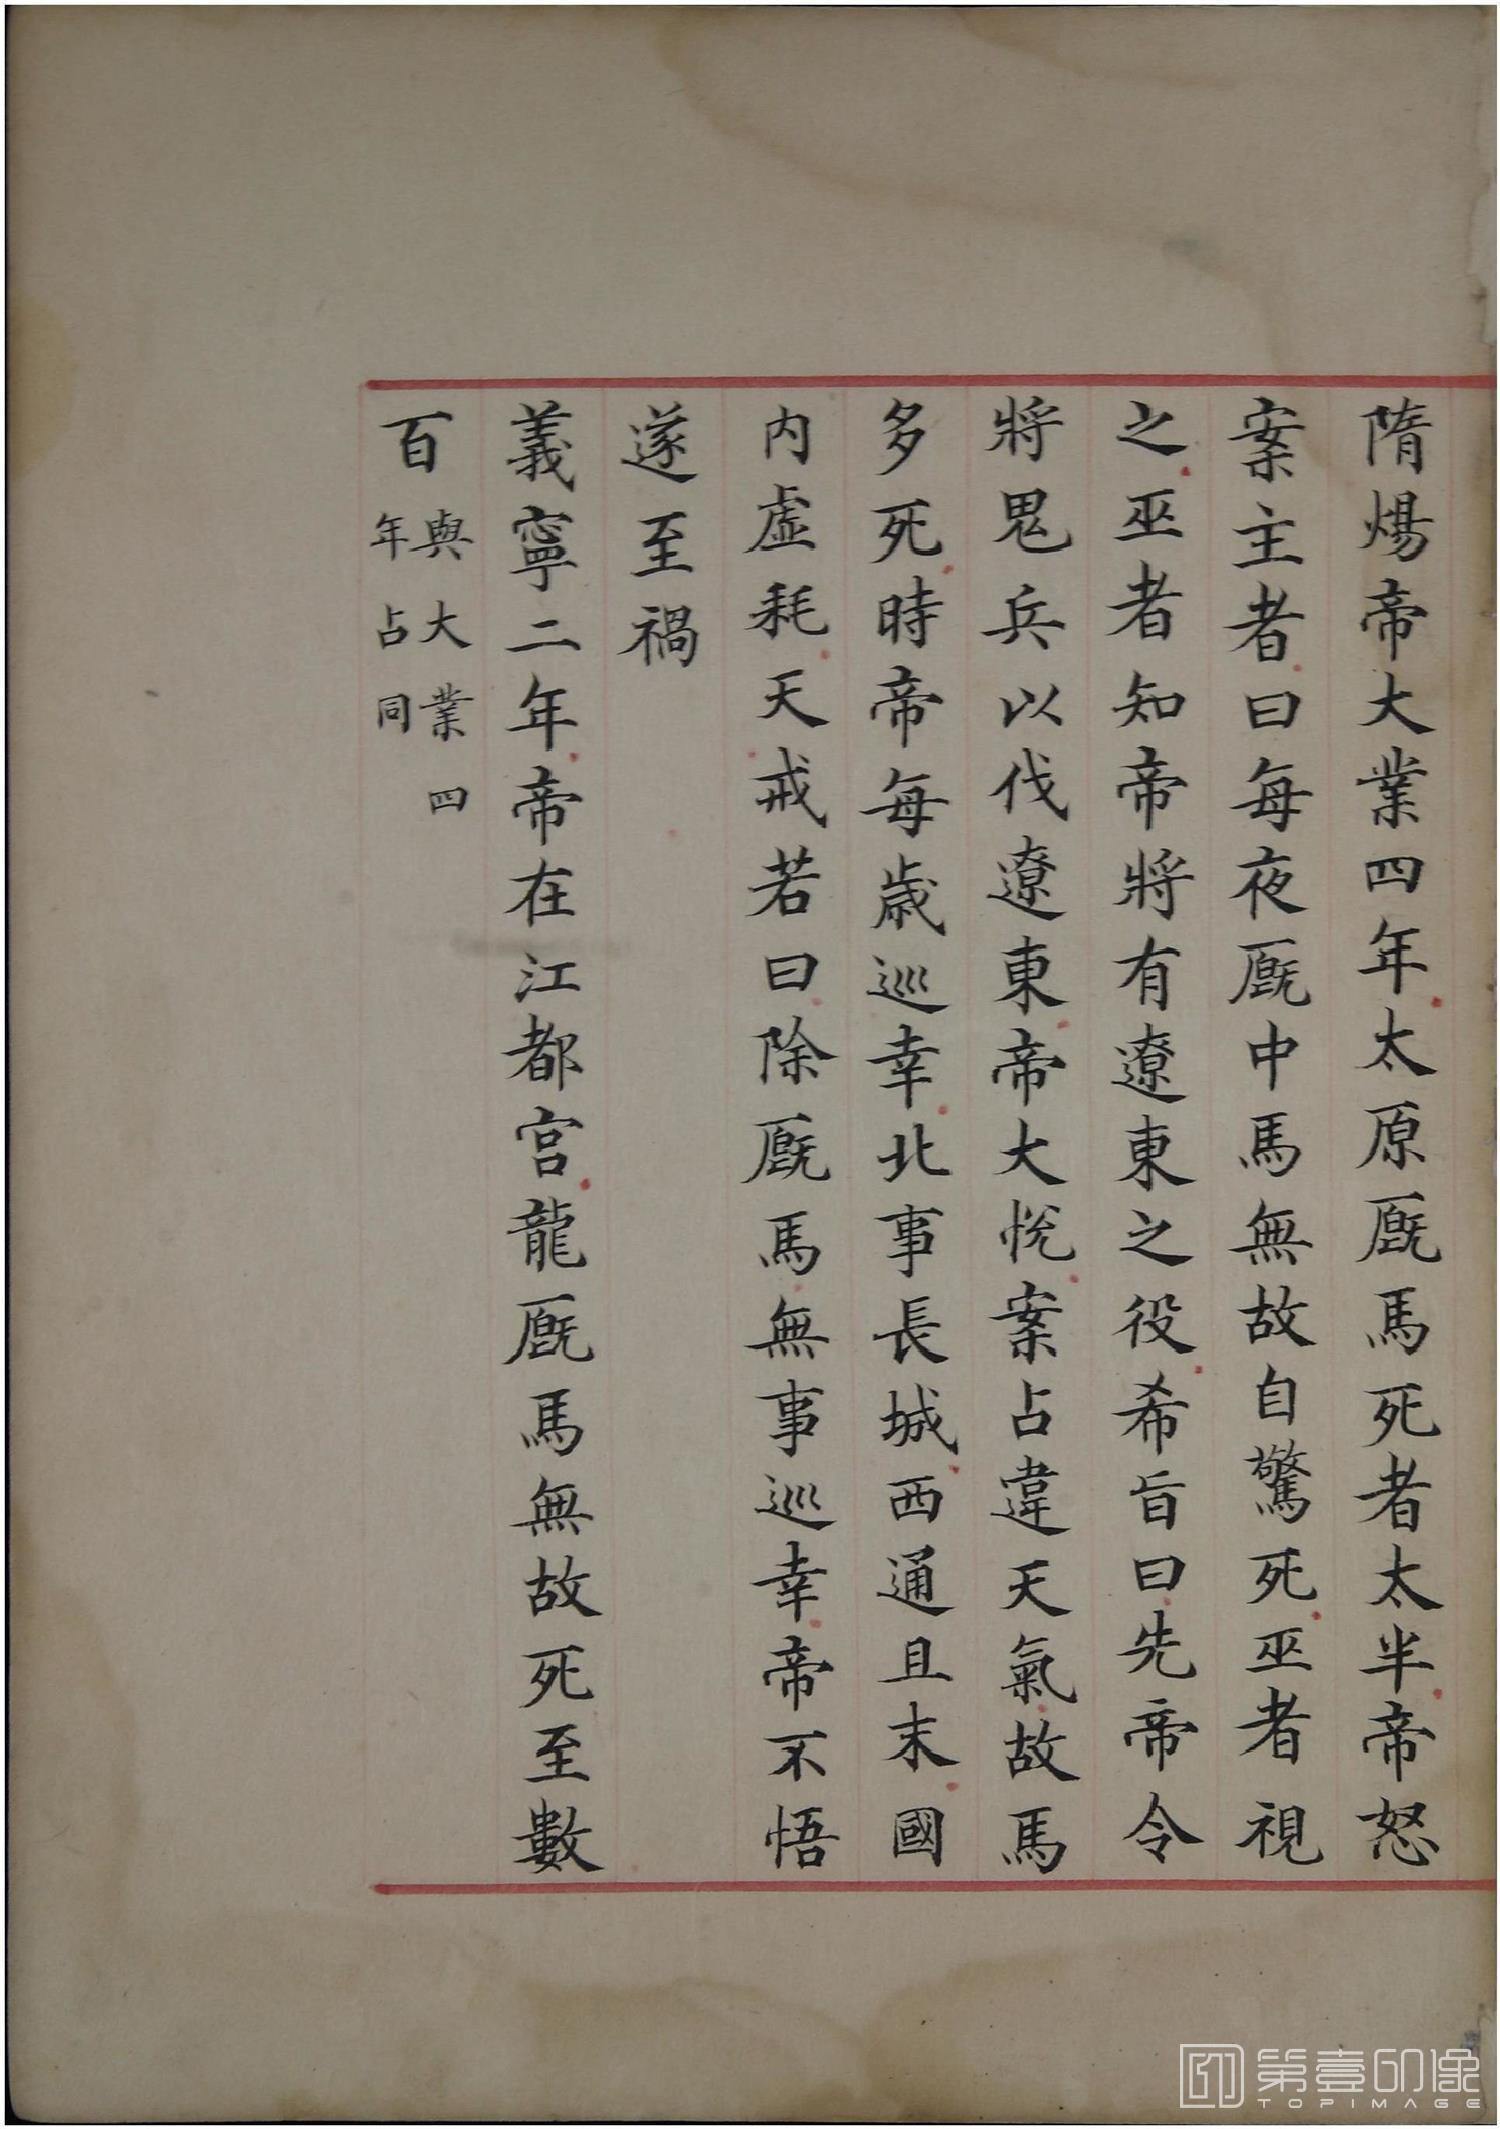 隋煬帝大業四年太原厩馬死者太半帝怒
案主者曰每夜厩中馬無故自驚死巫者視
之巫者知帝將有遼東之役希旨曰先帝令
將鬼兵以伐遼東帝大悅案占違天氣故馬
多死時帝每歲巡幸北事長城西通且末國
內虛耗天戒若曰除厩馬無事巡幸帝不悟
遂至禍
義寧二年帝在江都宮龍厩馬無故死至數
百與大業四年占同
第壹印像
TOPIMAGE